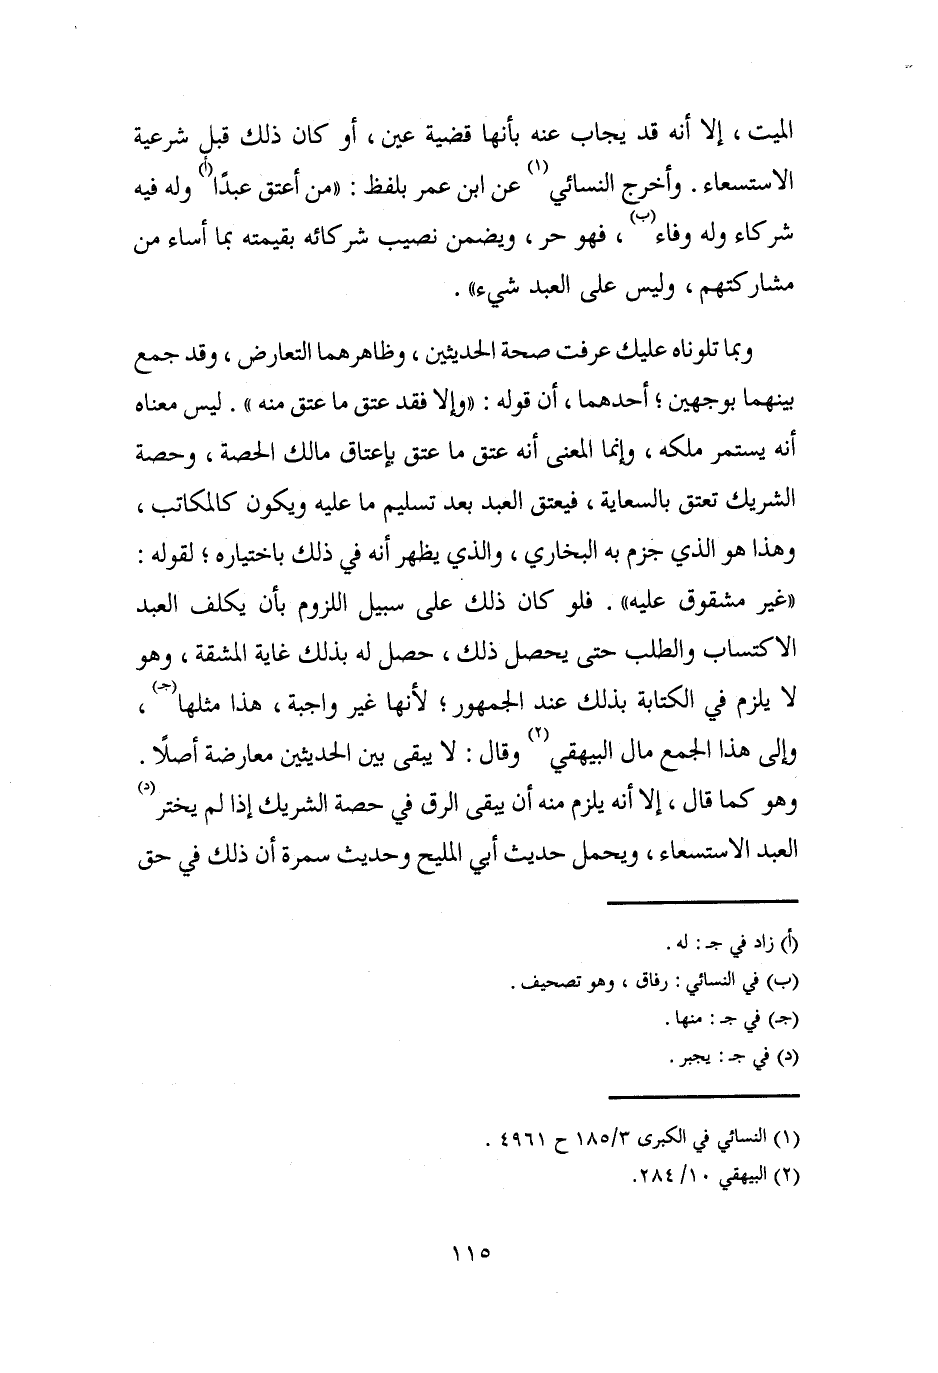 الميت ، إلا أنه قد يجاب عنه بأنها قضية عين ، أو كان ذلك قبل شرعية
الاستسعاء . وأخرج النسائي(١) عن ابن عمر بلفظ : «من أعتق عبدًا(أ) وله فيه
شركاء وله وفاء(ب) ، فهو حر ، ويضمن نصيب شركائه بقيمته بما أساء من
مشاركتهم ، وليس على العبد شيء» .
وبما تلوناه عليك عرفت صحة الحديثين ، وظاهرهما التعارض ، وقد جمع
بينهما بوجهين ؛ أحدهما ، أن قوله : «وإلا فقد عتق ما عتق منه » . ليس معناه
أنه يستمر ملكه ، وإنما المعنى أنه عتق ما عتق بإعتاق مالك الحصة ، وحصة
الشريك تعتق بالسعاية ، فيعتق العبد بعد تسليم ما عليه ويكون كالمكاتب ،
وهذا هو الذي جزم به البخاري ، والذي يظهر أنه في ذلك باختياره ؛ لقوله :
«غير مشقوق عليه» . فلو كان ذلك على سبيل اللزوم بأن يكلف العبد
الاكتساب والطلب حتى يحصل ذلك ، حصل له بذلك غاية المشقة ، وهو
لا يلزم في الكتابة بذلك عند الجمهور ؛ لأنها غير واجبة ، هذا مثلها(جـ) ،
وإلى هذا الجمع مال البيهقي(٢) وقال : لا يبقى بين الحديثين معارضة أصلًا .
وهو كما قال ، إلا أنه يلزم منه أن يبقى الرق في حصة الشريك إذا لم يختر(د)
العبد الاستسعاء ، ويحمل حديث أبي المليح وحديث سمرة أن ذلك في حق
(أ) زاد في جـ : له .
(ب) في النسائي : رفاق ، وهو تصحيف .
(جـ) في جـ : منها .
(د) في جـ : يجبر .
(١) النسائي في الكبرى ١٨٥/٣ ح ٤٩٦١ .
(٢) البيهقي ١٠/ ٢٨٤.
١١٥